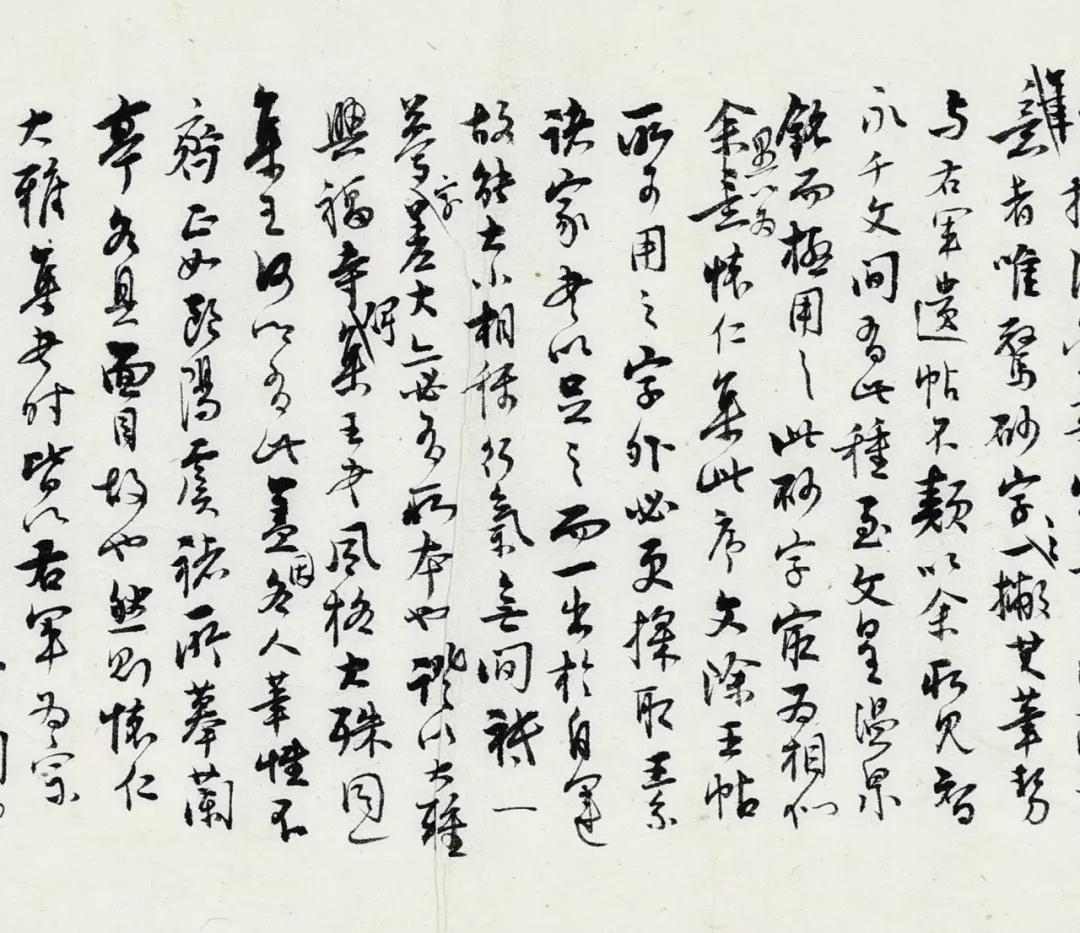 意者唯驚砂字一撇其筆勢
与右軍遺帖不類以余所見智
永千文間有此種至文皇温泉
銘而極用之此砂字宦为相似
余意懷仁集此序文除王帖
愚以为
所可用之字外必更採取王系
諸家書以足之而一出於自運
故能大小相稱行氣無間祗一
摹字差大亦必有所本也證以大雅
興福寺集王書風格大殊同
集王何以有此蓋各人筆性不
因
齊正如歐陽虞褚所摹蘭
亭各具面目故也然則懷仁
大雅集書时皆以右軍为宗